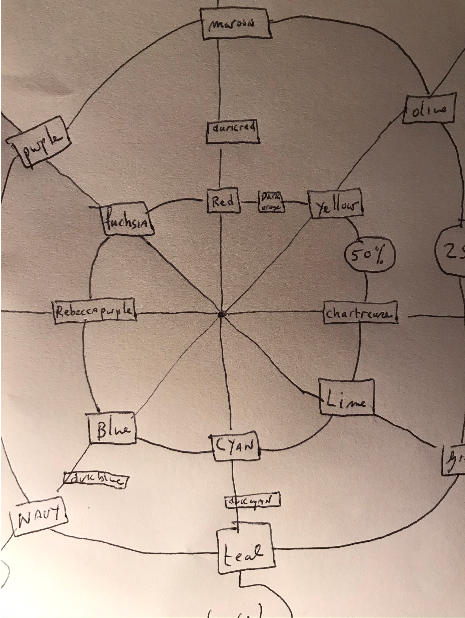 maroon
olive
purple
darkred
Red
Dark
orange
Yellow
fuchsia
50%
Rebeccapurple
chartreuse
Lime
Blue
CYAN
darkblue
darkcyan
NAVY
teal